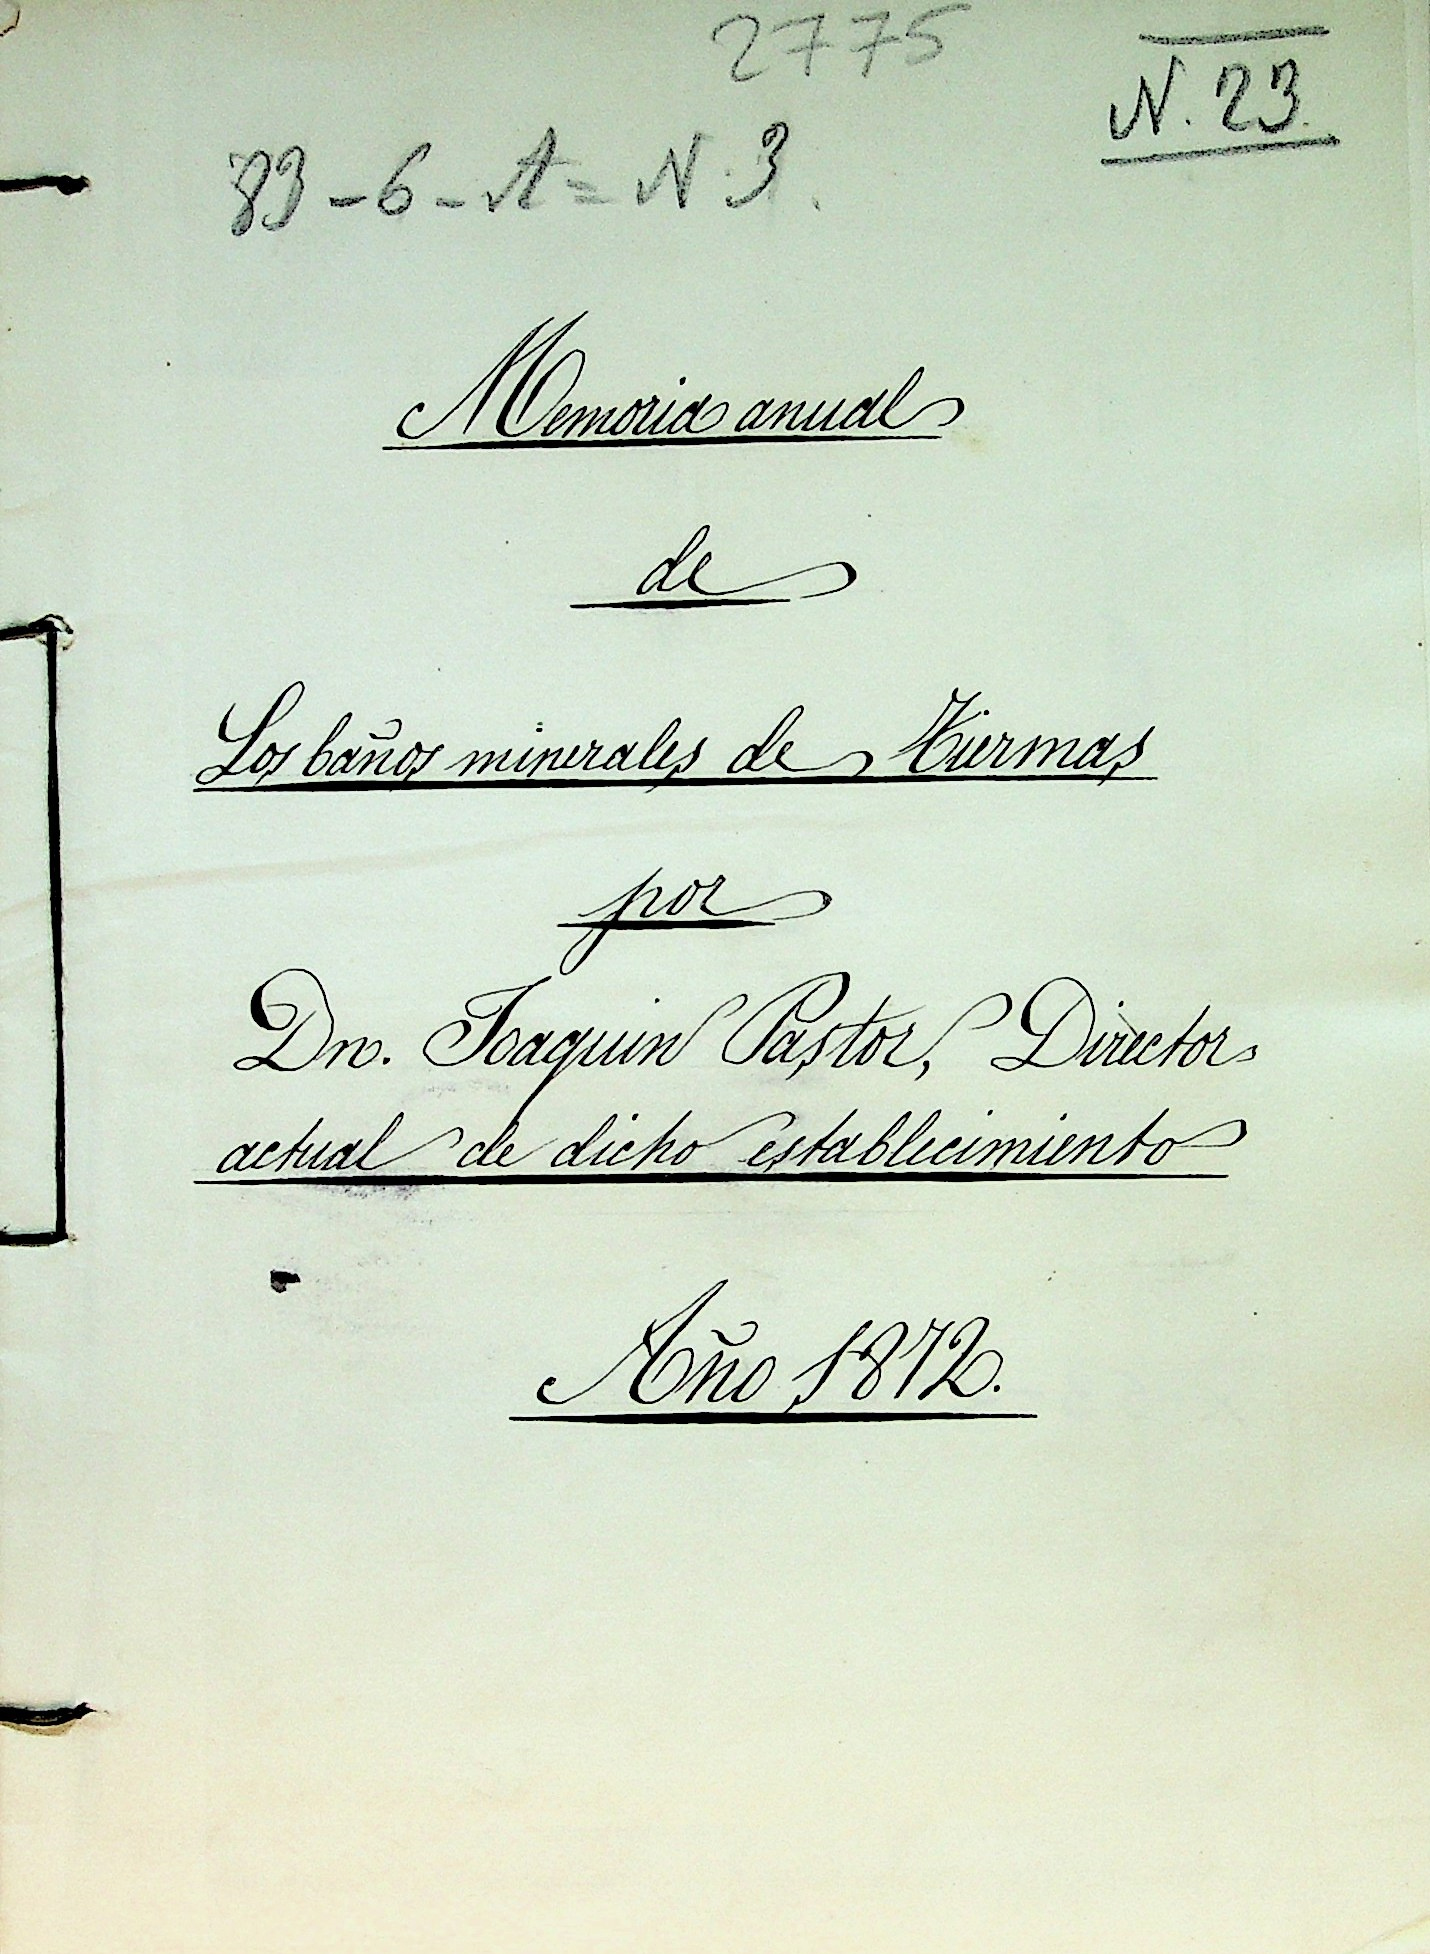 2775
N. 23.
83-6-A=N.3.
Memoria anual
de
Los baños minerales de Tiermas
por
Dn. Joaquin Pastor, Director
actual de dicho establecimiento
Año 1872.